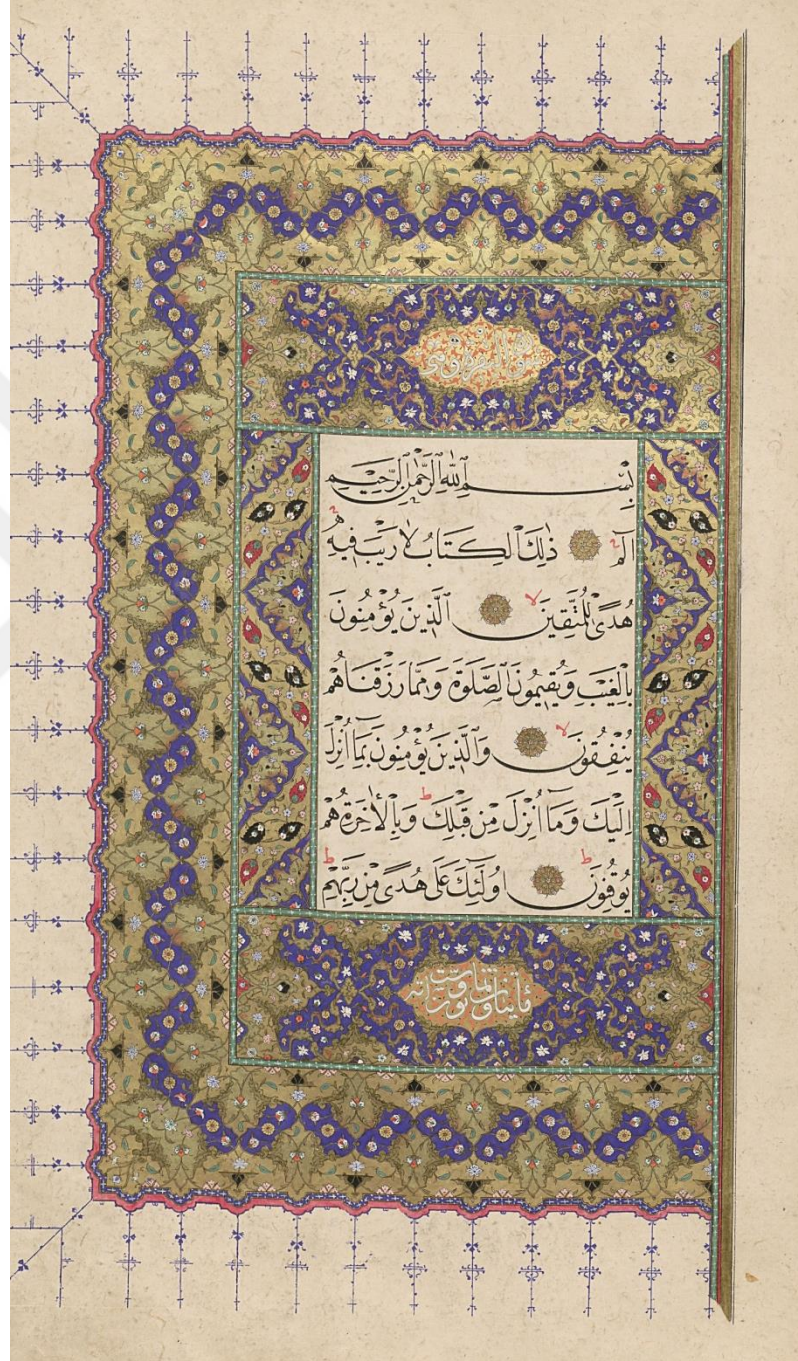 سورة البقرة وهى
بِسْمِ اللّٰهِ الرَّحْمٰنِ الرَّحِيمِ
الٓمٓ ذٰلِكَ الْكِتَابُ لَا رَيْبَ فِيهِ
هُدًى لِلْمُتَّقِينَ الَّذِينَ يُؤْمِنُونَ
بِالْغَيْبِ وَيُقِيمُونَ الصَّلٰوةَ وَمِمَّا رَزَقْنَاهُمْ
يُنْفِقُونَ وَالَّذِينَ يُؤْمِنُونَ بِمَا اُنْزِلَ
اِلَيْكَ وَمَا اُنْزِلَ مِنْ قَبْلِكَ وَبِالْاٰخِرَةِ هُمْ
يُوقِنُونَ اُولٰٓئِكَ عَلٰى هُدًى مِنْ رَبِّهِمْ
مأيتان وثمانون آية